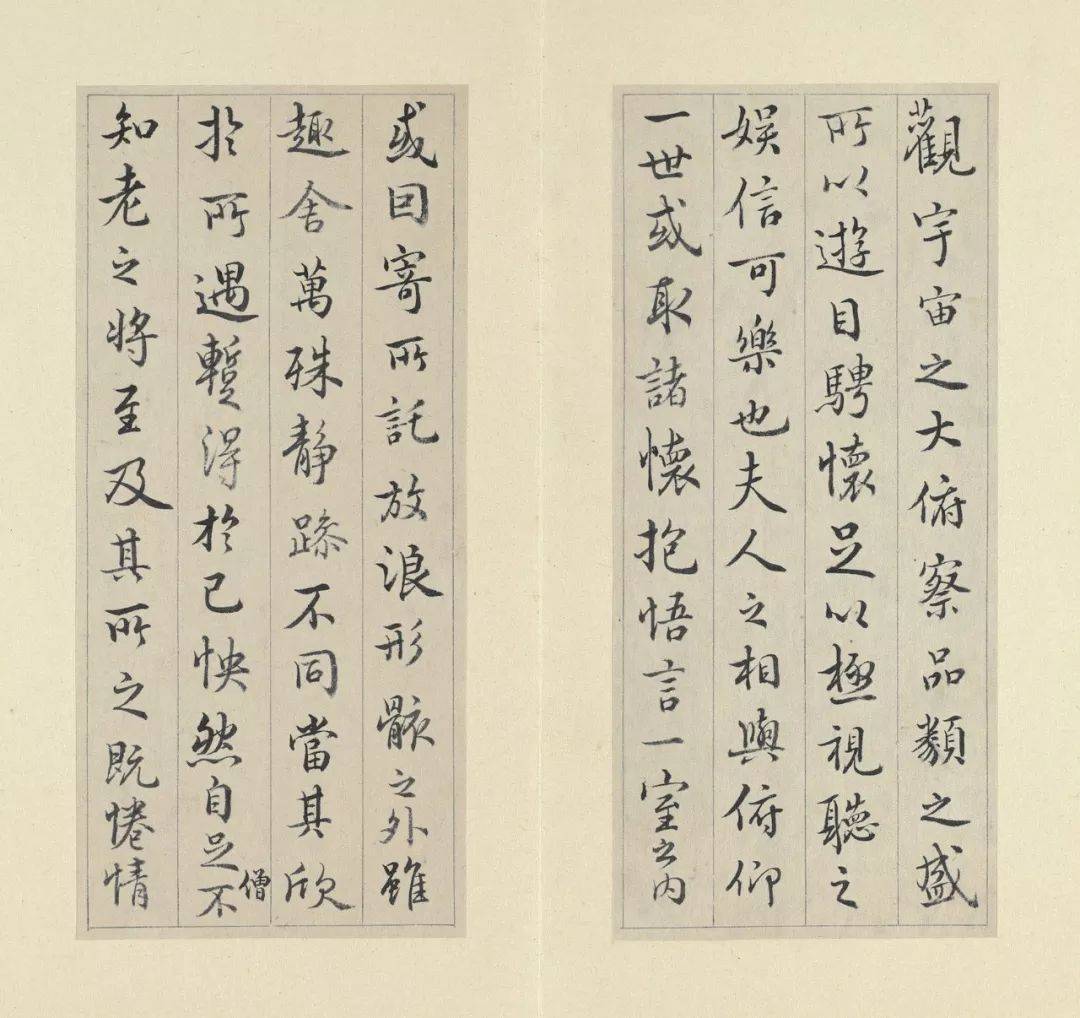 觀宇宙之大俯察品類之盛
所以遊目騁懷足以極視聽之
娛信可樂也夫人之相與俯仰
一世或取諸懷抱悟言一室之內
或因寄所託放浪形骸之外雖
趣舍萬殊靜躁不同當其欣
於所遇暫得於己怏然自足不
僧
知老之將至及其所之既惓情